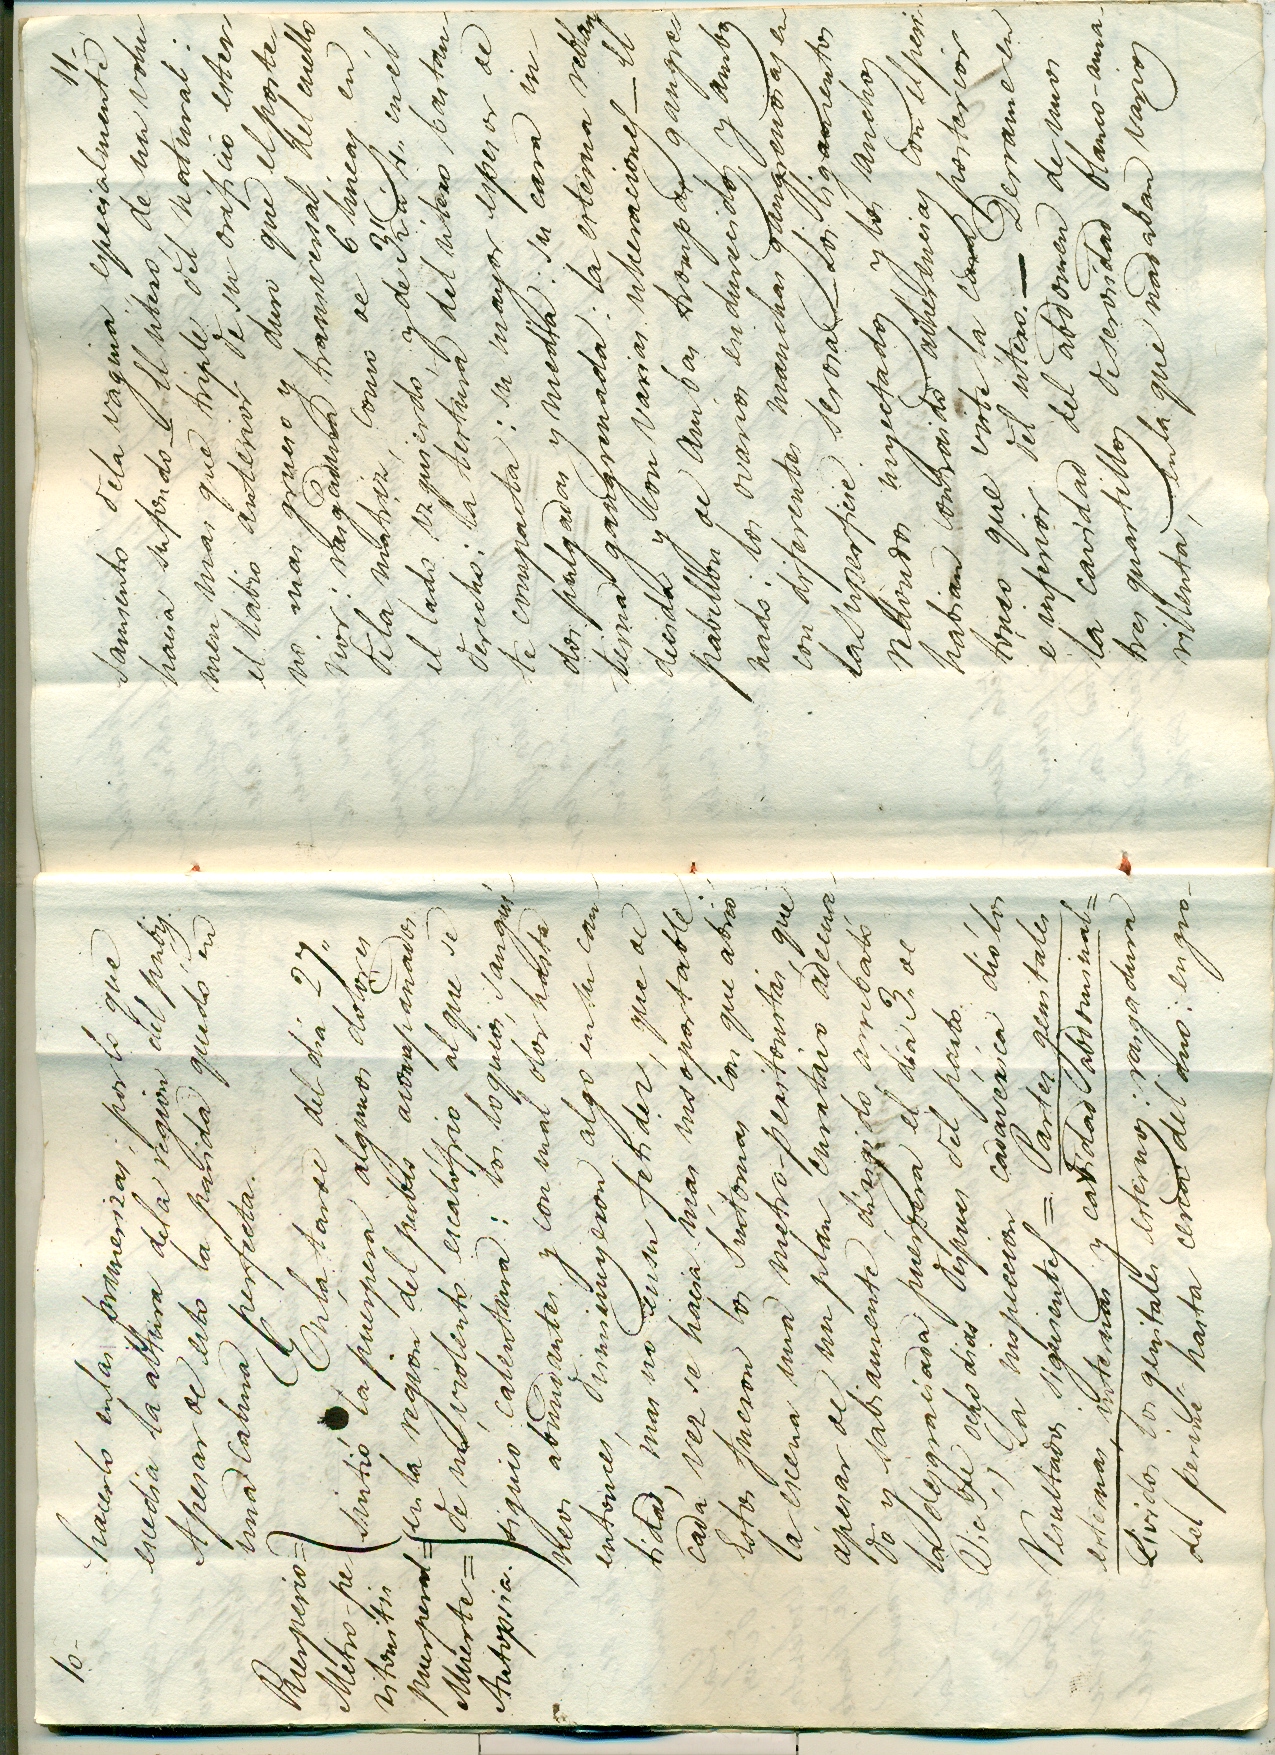 10-
hacerlo en las primerizas; por lo que
escedia la altura de la region del pubis.
Apesar de esto la parida quedó en
una calma perfecta.
Puerperio=
Metro-pe
ritonitis
puerperal=
Muerte=
Autopsia.
En la tarde del dia 27,,
sintió la puerpera algunos dolores
en la region del pubis acompañados
de un violento escalofrio al que se
siguió calentura: los loquios sangui-
neos abundantes y con mal olor hasta
entonces, diminuyeron algo en su can-
tidad, mas no en su fetidez, que de
cada vez se hacia mas insoportable.
Estos fueron los sintomas con que abrió
la escena una metro-peritonitis que
apesar de un plan curativo adecua-
do y sabiamente dirigido arrebató
la desgraciada puerpera el dia 3 de
Dic.bre ocho dias despues del parto.
La inspeccion cadavérica dió los
resultados siguientes = Partes genitales
esternas internas y cavidad abdominal=
Lividos los genitales esternos: rasgadura
del periné hasta cerca del ano: engro-
11-
samiento de la vagina especialmente
hacia su fondo_ El utero de un volu-
men mas que triple del natural:
el labio anterior de su orificio ester-
no mas grueso y duro que el poste-
rior: rasgadura transversal del cuello
de la matriz, como de 6 lineas en
el lado izquierdo, y de 3 id. en el
derecho: la testura del utero bastan-
te compacta: su mayor espesor de
dos pulgadas y media: su cara in-
terna gangrenada: la esterna reblan
decida y con varias ulceraciones_ El
pabellon de ambas trompas gangre-
nado: los ovarios endurecidos y ambos
con diferentes manchas gangrenosas en
la superficie serosa_ Los ligamentos
redondos inyectados y los anchos
habian contraido adherencias con el peri-
toneo que viste la cara posterior
é inferior del utero._ Derrame en
la cavidad del abdomen de unos
tres quartillos de serosidad blanco-ama-
rillenta, en la que nadaban varios